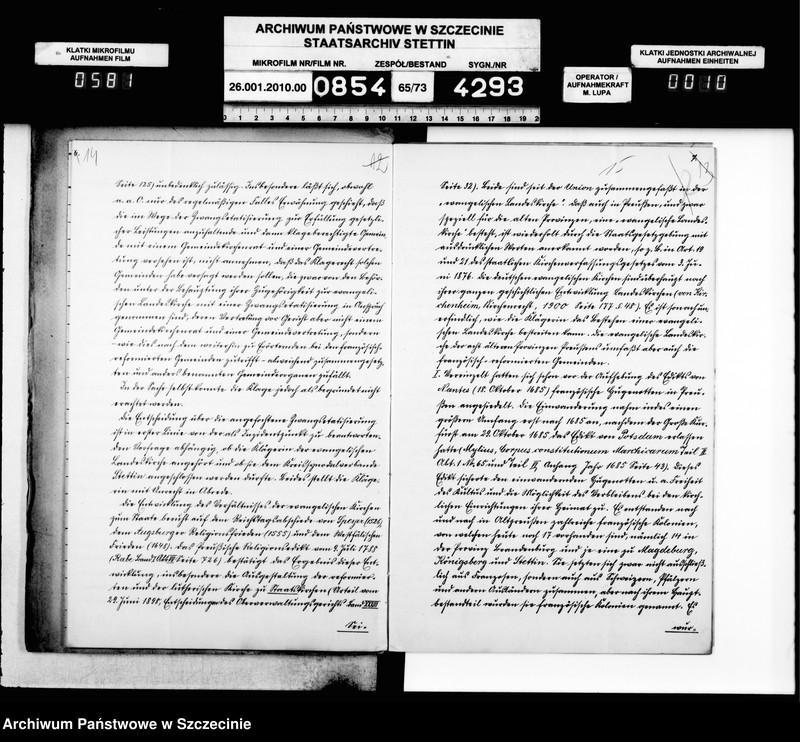 ARCHIWUM PAŃSTWOWE W SZCZECINIE
STAATSARCHIV STETTIN
KLATKI MIKROFILMU
AUFNAHMEN FILM
0581
MIKROFILM NR/FILM NR. ZESPÓŁ/BESTAND SYGN./NR
26.001.2010.00 0854 65/73 4293
OPERATOR /
AUFNAHMEKRAFT
M. LUPA
KLATKI JEDNOSTKI ARCHIWALNEJ
AUFNAHMEN EINHEITEN
0010
0 1 2 3 4 5 6 7 8 9 10 11 12 13 14 15 16 17 18 19 2
6. 14
12
Seite 125) unbedenklich zulässig. Insbesondere läßt sich, obwohl
a. a. O. nur des regelmäßigen Falles Erwähnung geschieht, daß
die im Wege der Zwangsetatisierung zur Erfüllung gesetzli-
cher Leistungen anzuhaltende und dann klageberechtigte Gemein-
de mit einem Gemeindekirchenrat und einer Gemeindevertre-
tung versehen ist, nicht annehmen, daß das Klagerecht solchen
Gemeinden habe versagt werden sollen, die zwar von den Behör-
den unter der Behauptung ihrer Zugehörigkeit zur evangeli-
schen Landeskirche mit einer Zwangsetatisierung in Anspruch
genommen sind, deren Vertretung vor Gericht aber nicht einem
Gemeindekirchenrat und einer Gemeindevertretung, sondern
- wie dies nach dem weiterhin zu Erörternden bei den französisch-
reformierten Gemeinden zutrifft - abweichend zusammengesetz-
ten und anders benannten Gemeindeorganen zufällt.
In der Sache selbst konnte die Klage jedoch als begründet nicht
erachtet werden.
Die Entscheidung über die angefochtene Zwangsetatisierung
ist in erster Linie von der als Inzidentpunkt zu beantworten-
den Vorfrage abhängig, ob die Klägerin der evangelischen
Landeskirche angehört und ob sie dem Kreissynodalverbande
Stettin angeschlossen werden durfte. Beides stellt die Kläge-
rin mit Unrecht in Abrede.
Die Entwicklung des Verhältnisses der evangelischen Kirchen
zum Staate beruht auf den Reichstagsabschiede von Speyer (1526),
dem Augsburger Religionsfrieden (1555) und dem Westfälischen
Frieden (1648). Das Preußische Religionsedikt vom 9. Juli 1788
Seite 726) bestätigt das Ergebnis dieser Ent-
wicklung, insbesondere die Ausgestaltung der reformier-
ten und der lutherischen Kirche zu Staatskirchen (Urteil vom
29. Juni 1898, Entscheidungen des Oberverwaltungsgerichts Band XXXIV
Sei-
7. 15
13
Seite 32). Beide sind seit der Union zusammengefaßt in der
„evangelischen Landeskirche". Daß auch in Preußen, und zwar
speziell für die alten Provinzen, eine „evangelische Landes-
kirche" besteht, ist wiederholt durch die Staatsgesetzgebung mit
ausdrücklichen Worten anerkannt worden, so z. B. in Art. 19
und 21 des staatlichen Kirchenverfassungsgesetzes vom 3. Ju-
ni 1876. Die deutschen evangelischen Kirchen sind überhaupt nach
ihrer ganzen geschichtlichen Entwicklung Landeskirchen (von Kir-
chenheim, Kirchenrecht, 1900 Seite 177 § 48). Es ist sonach un-
erfindlich, wie die Klägerin das Bestehen einer evangeli-
schen Landeskirche bestreiten kann. Die evangelische Landeskir-
che der acht älteren Provinzen Preußens umfaßt aber auch die
französisch-reformierten Gemeinden.
I. Vereinzelt hatten sich schon vor der Aufhebung des Edikts von
Nantes (18. Oktober 1685) französische Hugenotten in Preu-
ßen angesiedelt. Die Einwanderung nahm indes einen
größern Umfang erst nach 1685 an, nachdem der Große Kur-
fürst am 29. Oktober 1685 das Edikt von Potsdam erlassen
hatte (Mylius, Corpus constitutionum Marchicarum Teil II
Abt. 1 Nr. 65 und Teil VI, Anhang Jahr 1685 Seite 43). Dieses
Edikt sicherte den einwandernden Hugenotten u. a. Freiheit
des Kultus und die Möglichkeit des Verbleibens bei den kirch-
lichen Einrichtungen ihrer Heimat zu. Es entstanden nach
und nach in Altpreußen zahlreiche französische Kolonien,
von welchen heute noch 17 vorhanden sind, nämlich 14 in
der Provinz Brandenburg und je eine zu Magdeburg,
Königsberg und Stettin. Sie setzten sich zwar nicht ausschließ-
lich aus Franzosen, sondern auch aus Schweizern, Pfälzern
und andern Ausländern zusammen, aber nach ihrem Haupt-
bestandteil wurden sie französische Kolonien genannt. Es
wur-
Archiwum Państwowe w Szczecinie